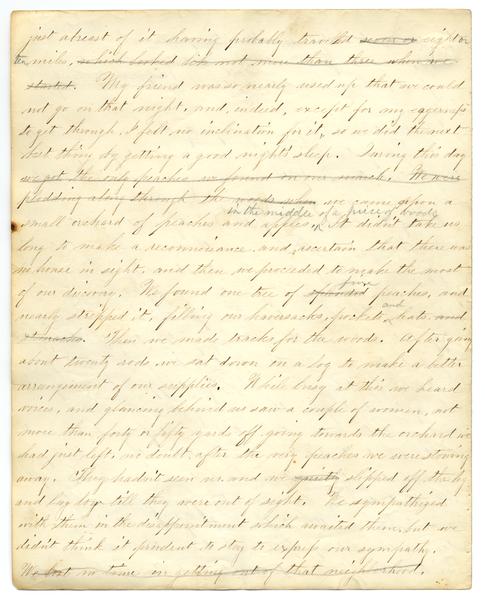 just abreast of it having probably travelt seven or eight or
ten miles, which looked not more than three when we
started. My friend was so nearly used up that we could
not go on that night, and, indeed, except for my eagerness
to get through, I felt no inclination for it, so we did the next
best thing by getting a good night's sleep. During this day
we got the only peaches we found on our march. We were
plodding along through the woods when we came upon a
in the middle of a piece of woods
small orchard of peaches and apples. It didn't take us
long to make a reconnoisance and ascertain that there was
no house in sight, and then we proceeded to make the most
of our discovery. We found one tree of splendid fine peaches, and
nearly stripped it, filling our haversacks, pockets and hats and
stomachs. Then we made tracks for the woods. After going
about twenty rods we sat down on a log to make a better
arrangement of our supplies. While busy at this we heard
voices, and glancing behind us saw a couple of women, not
more than forty or fifty yards off going towards the orchard we
had just left, no doubt after the very peaches we were stowing
away. They hadn't seen us and we quietly slipped off the log
and lay low till they were out of sight. We sympathized
with them in the disappointment which awaited them, but we
didn't think it prudent to stay to express our sympathy.
We lost no time in getting out of that neighborhood.